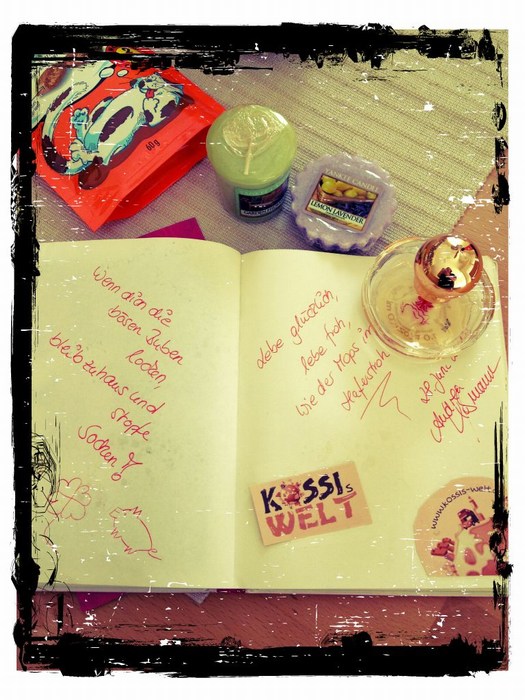 60g
YANKEE CANDLE
LEMON LAVENDER
Wenn dich die
bösen Buben
locken,
bleib zuhaus und
stopfe
Socken!
Lebe glücklich,
lebe froh,
wie der Mops im
Haferstroh
KOSSIs
WELT
www.kossis-wel